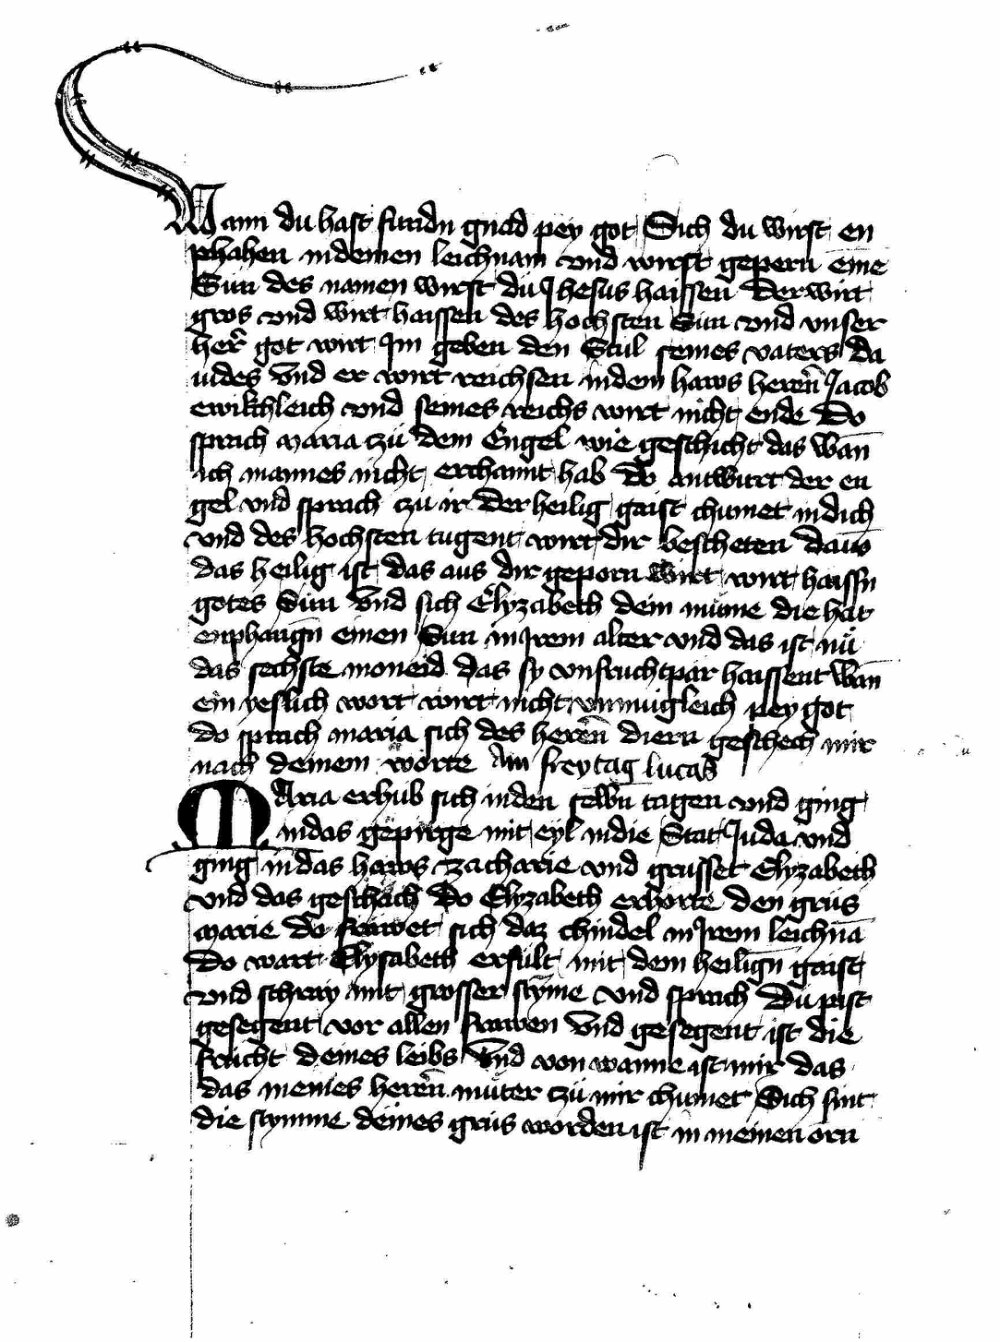 Wann du hast fundn gnad pey got Sich du wirst en
phahen in deinen leichnam vnd wirst gepern eine
Sun des namen wirst du Jhesus haissen Der wirt
gros vnd wirt haissen des hochsten Sun vnd vnser
her̄ got wirt Im geben den Stul seines vaters Da
uides Vnd er wirt reichsen in dem haws heren̄ Jacob
ewikchleich vnd seines reichs wirt nicht ende Do
sprach maria zu dem Engel wie geschicht das Wan̄
ich mannes nicht erchannt hab Do Antwurt der en
gel vnd sprach zu ir Der heilig gaist chumet in dich
vnd des hochsten tugent wirt dir bescheten dauō
das heilig ist das aus dir geporn Wirt wirt haissn
gotes Sun Vnd sich Elyzabeth dein mume die hat
enphangn̄ einen Sun in Irem alter vnd das ist nu
das sechste moneid das sy vnfruchtpar haissent Wan̄
ein yeslich wort wirt nicht vnmugleich pey got
do sprach maria sich des heren̄ diern geschech mir
nach deinem worte Am freytag lucas
Maria erhub sich in den selbn̄ tagen vnd ging
in das gepirge mit eyl in die Stat Juda vnd
ging in das haws zacharie vnd grusset Elyzabeth
vnd das geschach Do Elyzabeth erhorte den grus
marie do frewet sich daz chindel in Irem leichnā
Do wart Elysabeth erfult mit dem heilign̄ gaist
vnd schray mit grosser stȳme vnd sprach Du pist
gesegent vor allen frawen Vnd gesegent ist die
frucht deines leibs Vnd von wanne ist mir das
das meines heren̄ muter zu mir chumet Sich sint
die stymme deines grus worden ist in meinen orn